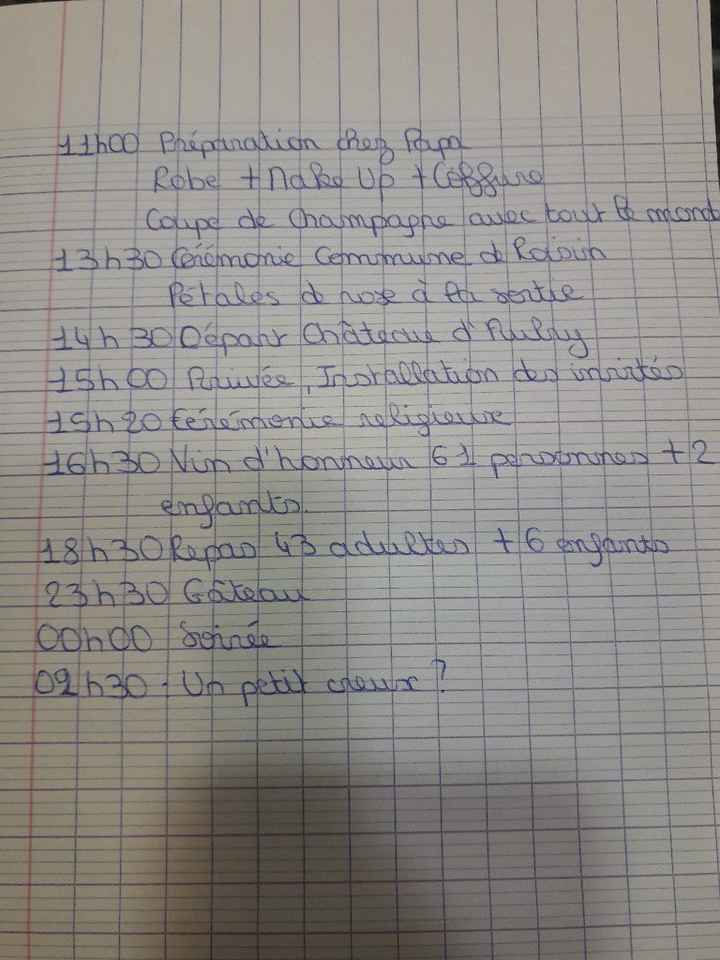 11h00 Préparation chez Papa
Robe + Make Up + Coiffure
Coupe de Champagne avec tout le mond
13h30 Cérémonie Commune de Roisin
Pétales de rose à la sortie
14h30 Départ Château d'Aulny
15h00 Arrivée, Installation des invités
15h20 Cérémonie religieuse
16h30 Vin d'honneur 61 personnes + 2
enfants.
18h30 Repas 43 adultes + 6 enfants
23h30 Gâteau
00h00 Soirée
02h30 - Un petit creux ?